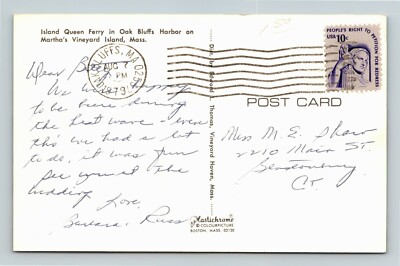 Island Queen Ferry in Oak Bluffs Harbor on
Martha's Vineyard Island, Mass.
OAK BLUFFS, MA 025
AUG
PM
1979
PEOPLE'S RIGHT TO PETITION FOR REDRESS
USA 10c
POST CARD
Dist. by Edward J. Thomas, Vineyard Haven, Mass.
Plastichrome
COLOURPICTURE
BOSTON, MASS. 02130
Dear
We were
to be here during
the heat wave - even
tho' we had a lot
to do, it was fun
see you at the
wedding Love,
Barbara, Russ
Miss M. E. Shaw
2210 Main St.
Glastonbury
CT.